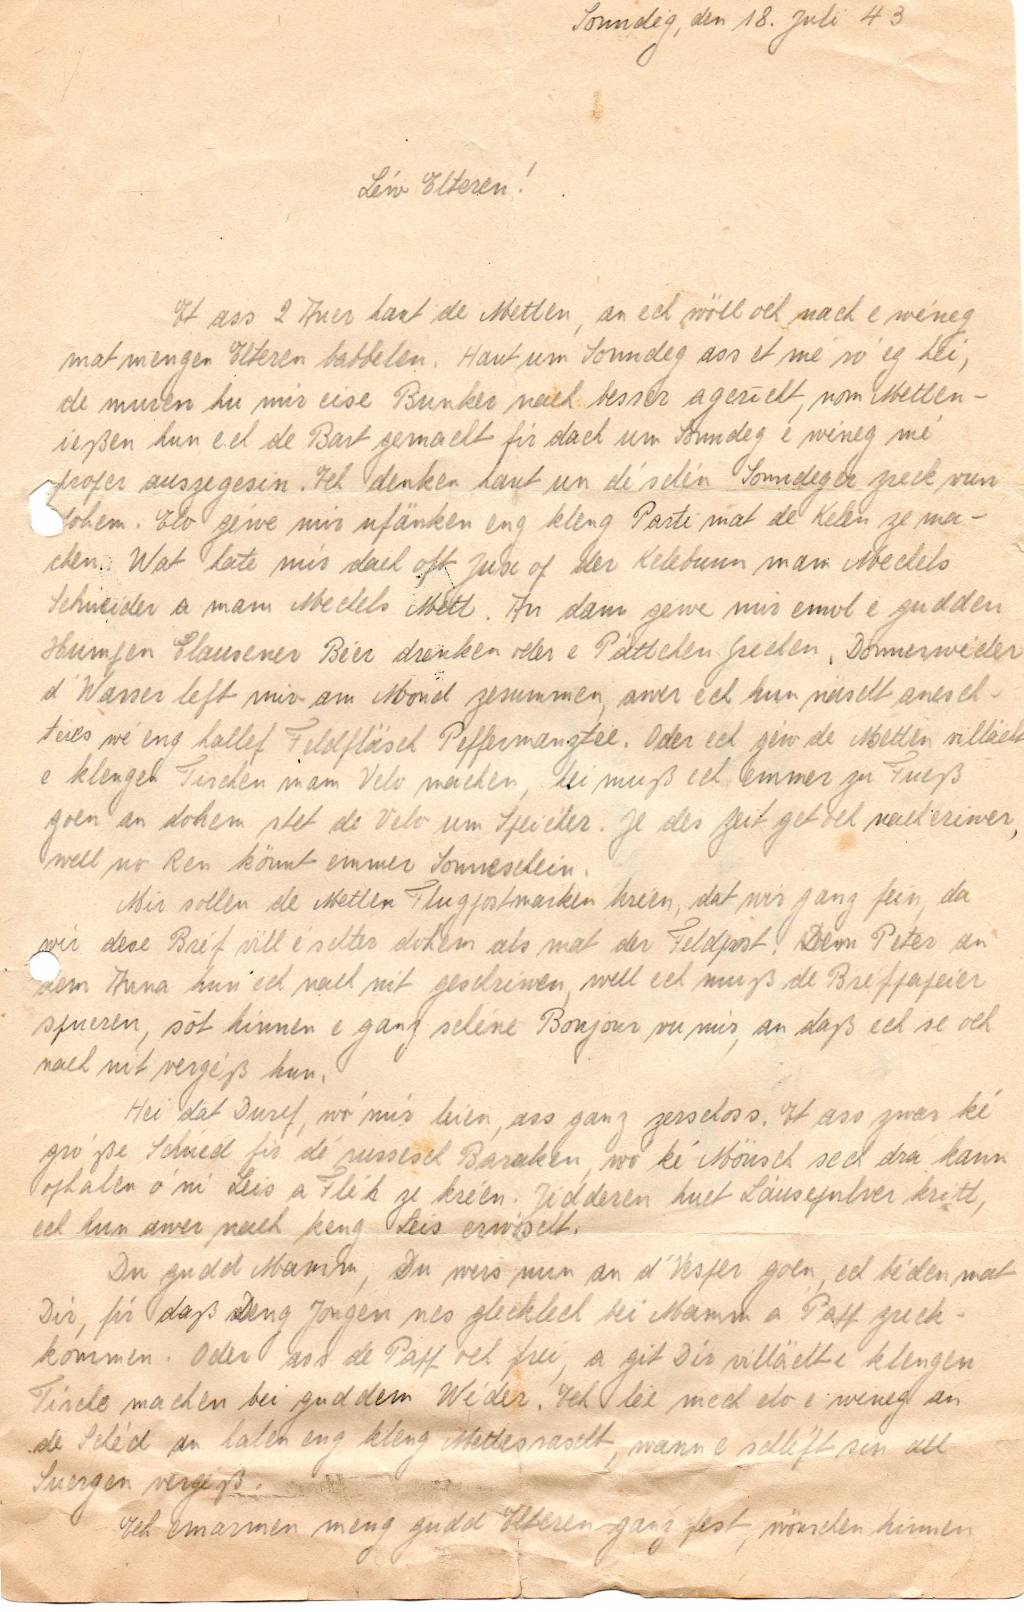 Sonndig, den 18. Juli 43
Léiw Elteren!
Et ass 2 Auer haut de Metten, an ech wöll och nach e wéneg
mat mengen Elteren babbelen. Haut um Sonndeg ass et mé ró eg hei,
de muren hu mir eise Bunker nach besser agericht, nom Metten-
ießen hun ech de Bart gemacht fir dach um Sonndeg e wéneg mé
proper auszegesin. Ech denken haut un dé schén Sonndeger zreck vun
dohem. Elo géiwe mir ufänken eng kleng Parti mat de Kelen ze ma-
chen. Wat hate mir dach oft Jux of der Kelebunn mam Mechels
Schneider a mam Mechels Mett. An dann gewe mir emol e gudden
Humpen Clausener Bier drenken oder e Pättchen Grechen. Donnerwéder
d'Wasser left mir am Mond zesummen, awer ech hun näischt anesch-
teies wé eng hallef Feldfläsch Peffermanztée. Oder ech géw de Metten villächt
e klengen Tirchen mam Velo machen, hei muß ech emmer zu Fueß
goen an dohem stet de Velo um Speicher. Je des Zeit get och nacheriwer,
well no Ren könnt emmer Sonneschein.
Mir sollen de Metten Flugpostmarken kréen, dat wir ganz fein, da
wir dese Bréf vill éischter dohem als mat der Feldpost. Dem Peter an
dem Anna hun ech nach nit geschriwen, well ech muß de Bréfpapeier
spueren, sót hinnen e ganz schéne Bonjour vu mir, an daß ech se och
nach nit vergéß hun.
Hei dat Duref, wó mir leien, ass ganz zerschoss. Et ass zwar ké
gróße Schued fir dé russesch Baraken, wo ké Mönsch sech dra kann
ophalen ó ni Leis a Fléh ze kréen. Jidderen huet Läusepulver kritt,
ech hun awer nach keng Leis erwëscht.
Du gudd Mamm, Du wers nun an d'Vesper goen, ech béden mat
Dir, fir daß Deng Jongen nes glecklech bei Mamm a Papp zreck-
kommen. Oder ass de Papp och frei, a git Dir villächt e klengen
Tirche machen bei guddem Wéder. Ech lée mech elo e wéneg an
de Schéd an halen eng kleng Mettesrascht, wann e schléft sin all
Suergen vergéß.
Ech emarmen meng gudd Elteren ganz fest, wönschen hinnen